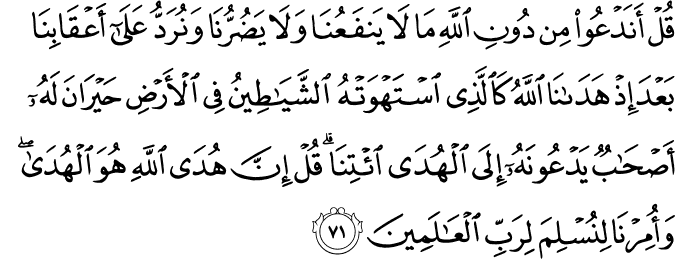 قُلْ أَنَدْعُوا۟ مِن دُونِ ٱللَّهِ مَا لَا يَنفَعُنَا وَلَا يَضُرُّنَا وَنُرَدُّ عَلَىٰٓ أَعْقَابِنَا
بَعْدَ إِذْ هَدَىٰنَا ٱللَّهُ كَٱلَّذِى ٱسْتَهْوَتْهُ ٱلشَّيَـٰطِينُ فِى ٱلْأَرْضِ حَيْرَانَ لَهُۥٓ
أَصْحَـٰبٌ يَدْعُونَهُۥٓ إِلَى ٱلْهُدَى ٱئْتِنَا ۗ قُلْ إِنَّ هُدَى ٱللَّهِ هُوَ ٱلْهُدَىٰ ۖ
وَأُمِرْنَا لِنُسْلِمَ لِرَبِّ ٱلْعَـٰلَمِينَ ٧١